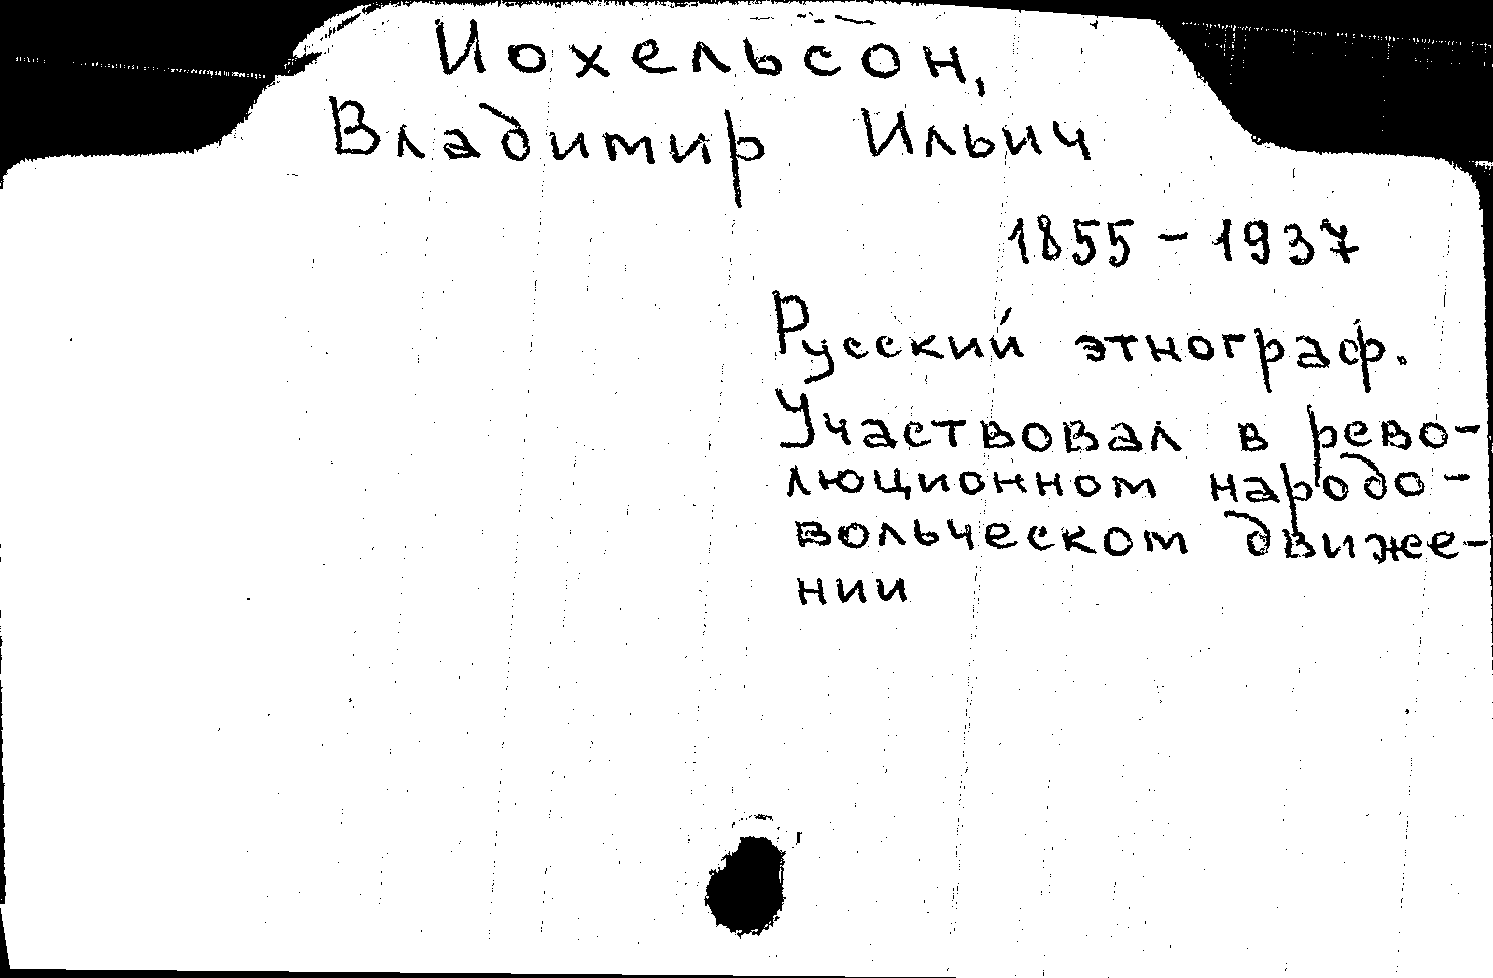 Иохельсон,
Владимир Ильич
1855 - 1937
Русский этнограф.
Участвовал в рево-
люционном народо-
вольческом движе-
нии